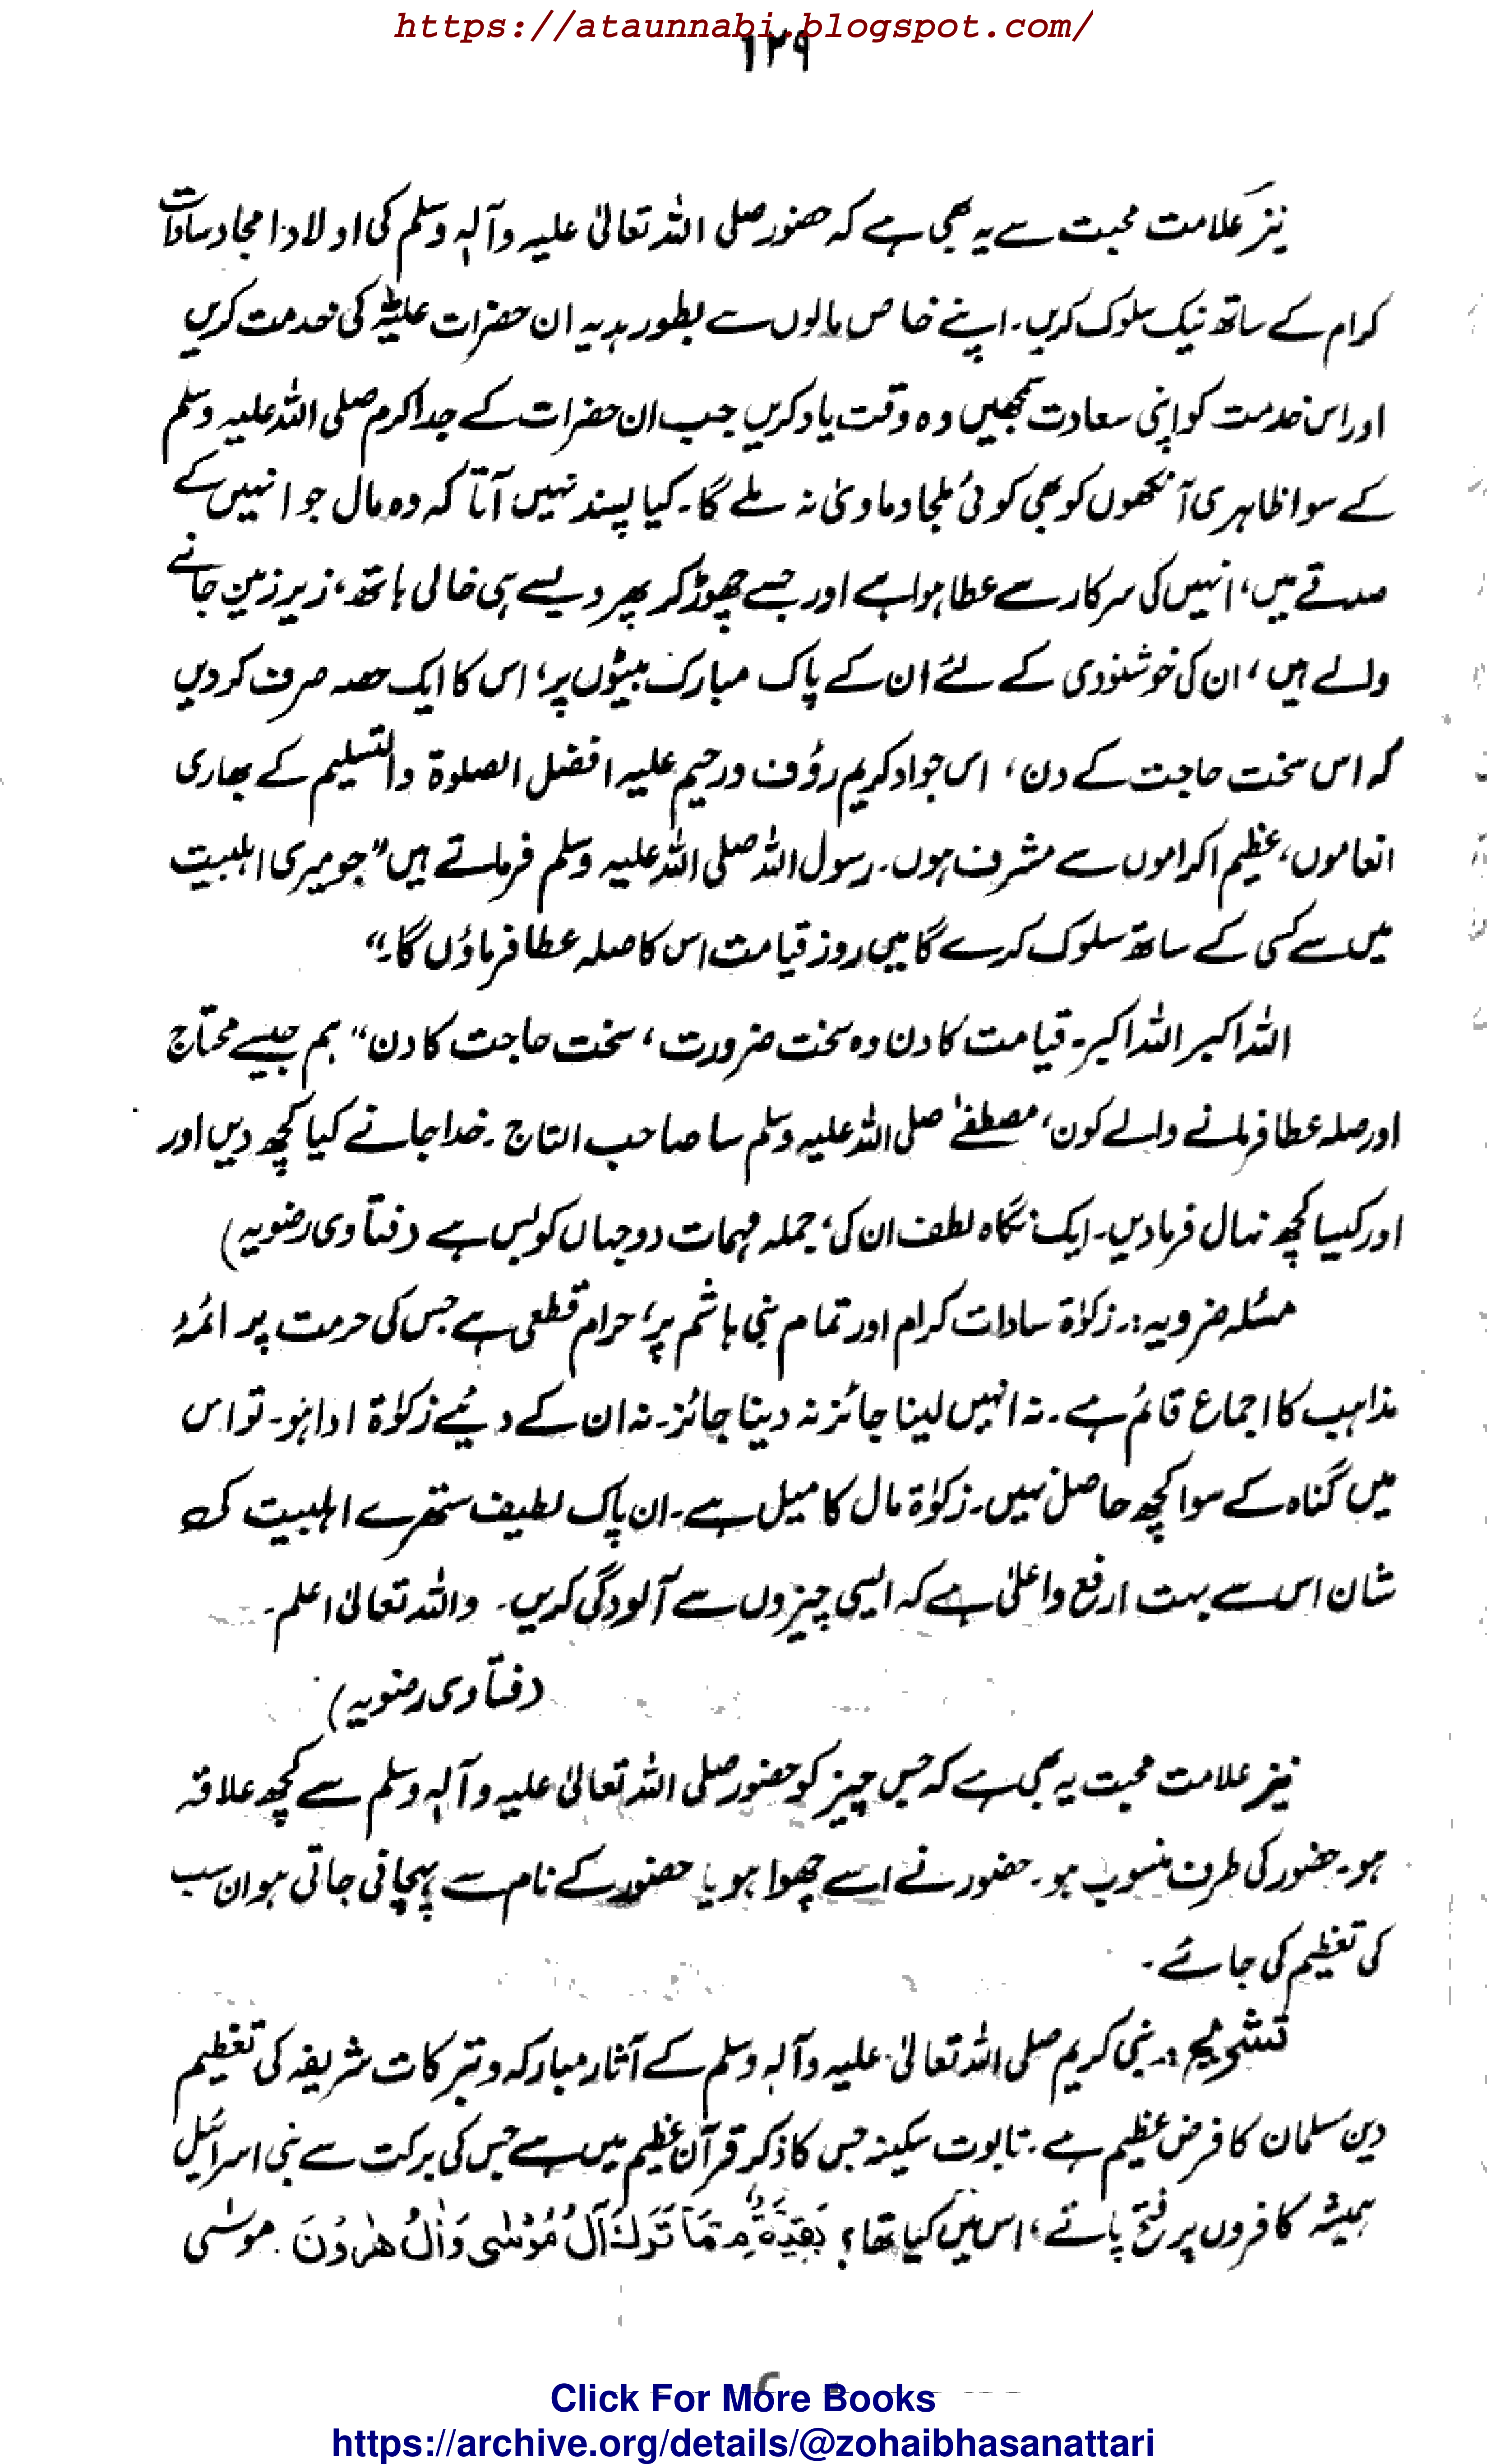 https://ataunnabi.blogspot.com/
۱۲۹
نیز علامت محبت سے یہ بھی ہے کہ حضور صلی اللہ تعالیٰ علیہ وآلہٖ وسلم کی اولاد امجاد سادات
کرام کے ساتھ نیک سلوک کریں۔ اپنے خاص مالوں سے بطور ہدیہ ان حضرات علیہ کی خدمت کریں
اور اس خدمت کو اپنی سعادت سمجھیں وہ وقت یاد کریں جب ان حضرات کے جد اکرم صلی اللہ علیہ وسلم
کے سوا ظاہری آنکھوں کو بھی کوئی ملجا و ماویٰ نہ ملے گا۔ کیا پسند نہیں آتا کہ وہ مال جو انہیں کے
صدقے میں، انہیں کی سرکار سے عطا ہوا ہے اور جسے چھوڑ کر پھر ویسے ہی خالی ہاتھ، زیر زمین جانے
والے ہیں، ان کی خوشنودی کے لئے ان کے پاک مبارک بیٹوں پر، اس کا ایک حصہ صرف کر دیں
کہ اس سخت حاجت کے دن، اس جواد کریم رؤف ورحیم علیہ افضل الصلوۃ والتسلیم کے بھاری
انعاموں، عظیم اکراموں سے مشرف ہوں۔ رسول اللہ صلی اللہ علیہ وسلم فرماتے ہیں "جو میری اہلبیت
میں سے کسی کے ساتھ سلوک کرے گا میں روز قیامت اس کا صلہ عطا فرماؤں گا۔"
اللہ اکبر اللہ اکبر۔ قیامت کا دن وہ سخت ضرورت، سخت حاجت کا دن" ہم جیسے محتاج
اور صلہ عطا فرمانے والے کون، مصطفےٰ صلی اللہ علیہ وسلم سا صاحب التاج۔ خدا جانے کیا کچھ دیں اور
اور کیسا کچھ نہال فرما دیں۔ ایک نگاہ لطف ان کی، جملہ مہمات دو جہاں کو بس ہے (فتاوی رضویہ)
مسئلہ ضرویہ:۔ زکوٰۃ سادات کرام اور تمام بنی ہاشم پر، حرام قطعی ہے جس کی حرمت پر ائمۂ
مذاہب کا اجماع قائم ہے۔ نہ انہیں لینا جائز نہ دینا جائز۔ نہ ان کے دئیے زکوٰۃ ادا ہو۔ تو اس
میں گناہ کے سوا کچھ حاصل نہیں۔ زکوٰۃ مال کا میل ہے۔ ان پاک لطیف ستھرے اہلبیت کی
شان اس سے بہت ارفع و اعلیٰ ہے کہ ایسی چیزوں سے آلودگی کریں۔ واللہ تعالیٰ اعلم۔
(فتاوی رضویہ)
نیز علامت محبت یہ بھی ہے کہ جس چیز کو حضور صلی اللہ تعالیٰ علیہ وآلہٖ وسلم سے کچھ علاقہ
ہو۔ حضور کی طرف منسوب ہو۔ حضور نے اسے چھوا ہو یا حضور کے نام سے پہچانی جاتی ہو ان سب
کی تعظیم کی جائے۔
تشریح:۔ نبی کریم صلی اللہ تعالیٰ علیہ وآلہٖ وسلم کے آثار مبارکہ و تبرکات شریفہ کی تعظیم
دین مسلمان کا فرض عظیم ہے۔ تابوت سکینہ جس کا ذکر قرآن عظیم میں ہے جس کی برکت سے بنی اسرائیل
ہمیشہ کافروں پر فتح پاتے، اس میں کیا تھا؟ بَقِیَّةٌ مِمَّا تَرَكَ آلُ مُوْسٰى وَاٰلُ هٰرُوْنَ۔ موسٰی
Click For More Books
https://archive.org/details/@zohaibhasanattari